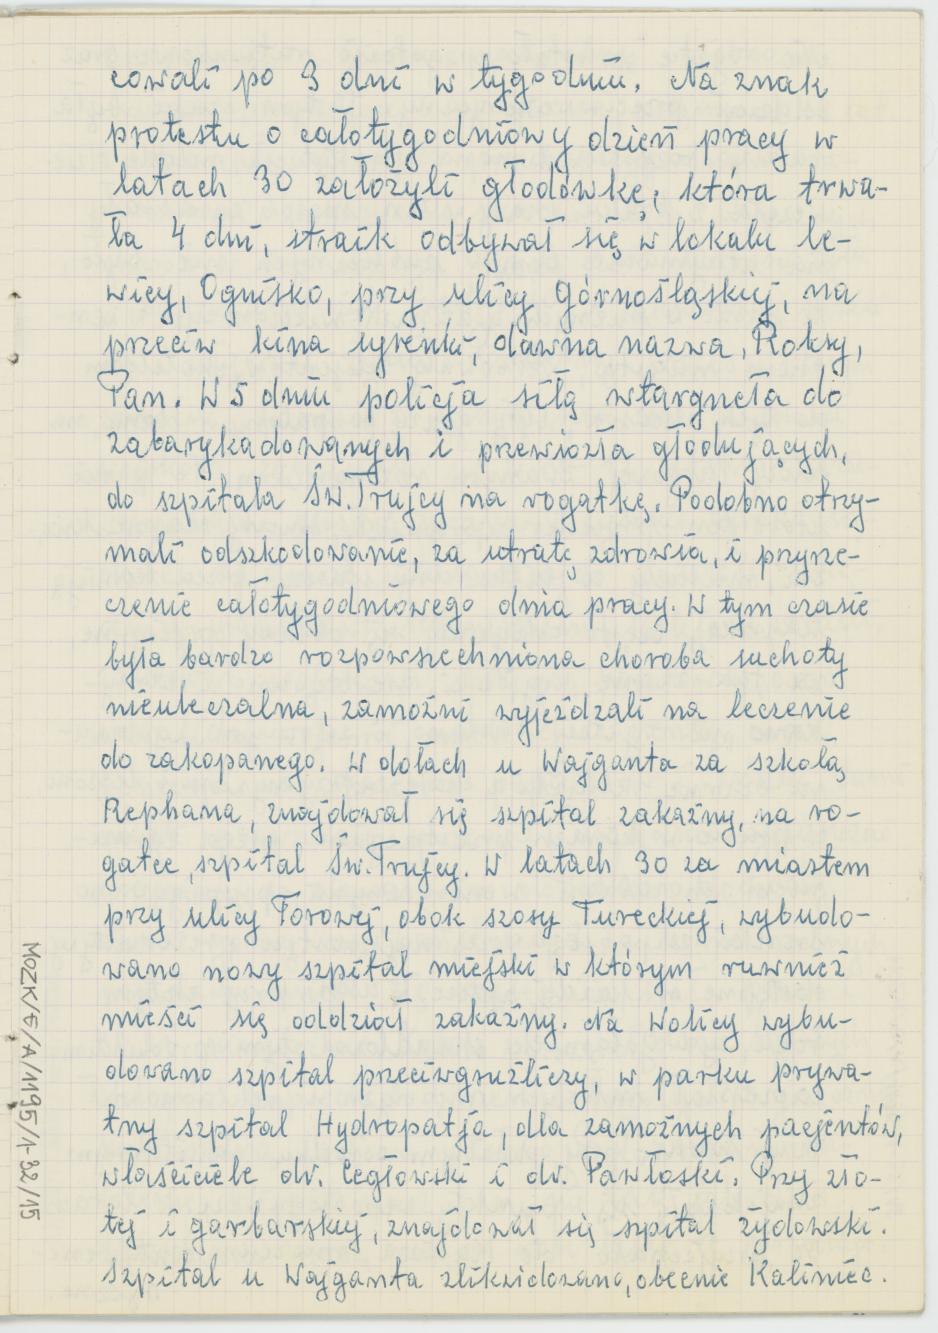 cowali po 3 dni w tygodniu. Na znak
protestu o całotygodniowy dzień pracy w
latach 30 założyli głodówkę, która trwa-
ła 4 dni, straik odbywał się w lokalu le-
wicy, Ognisko, przy ulicy Górnośląskiej, na
przeciw kina syrenki, dawna nazwa, Roksy,
Pan. W 5 dniu policja siłą wtargneła do
zabarykadowanych i przewiozła głodujących,
do szpitala Św. Trujcy na rogatkę. Podobno otrzy-
mali odszkodowanie, za utratę zdrowia, i przyrze-
czenie całotygodniowego dnia pracy. W tym czasie
była bardzo rozpowszechniona choroba suchoty
nieuleczalna, zamożni wyjeżdzali na leczenie
do zakopanego. W dołach u Wajganta za szkołą
Rephana, znajdował się szpital zakaźny, na ro-
gatce, szpital Św. Trujcy. W latach 30 za miastem
przy ulicy Torowej, obok szosy Tureckiej, wybudo-
wano nowy szpital miejski w którym ruwnież
mieści się oddział zakaźny. Na Wolicy wybu-
dowano szpital przeciwgruźliczy, w parku prywa-
tny szpital Hydropatja, dla zamożnych pacjentów,
właściciele dr. Cegłowski i dr. Pawłoski. Przy zło-
tej i garbarskiej, znajdował się szpital żydowski.
Szpital u Wajganta zlikwidowano, obecnie Kaliniec.
MOZK/F/A/1195/1-32/15